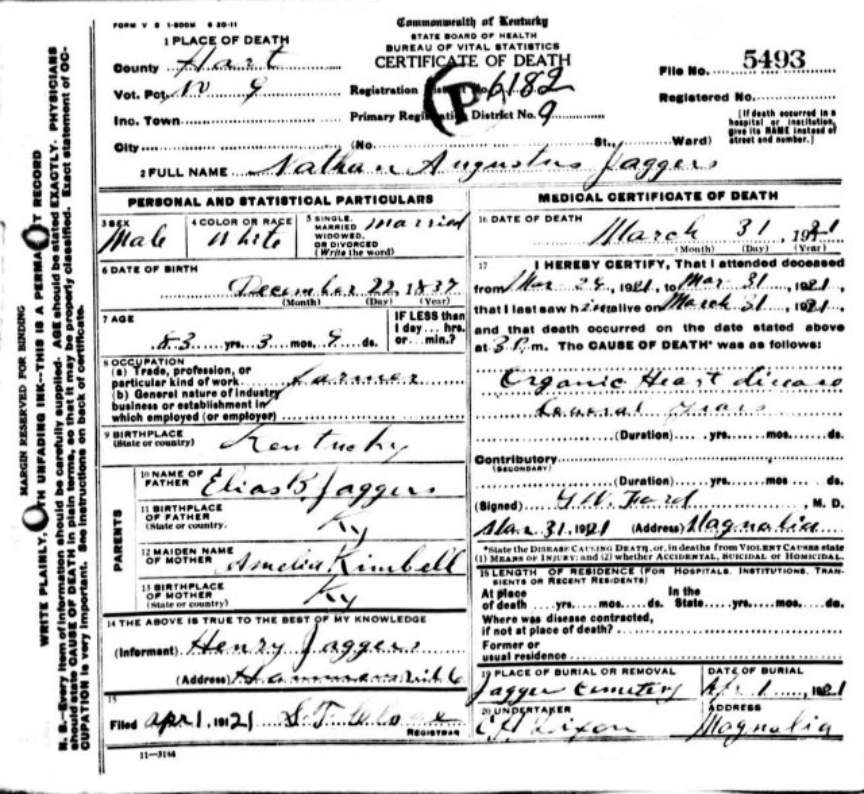 FORM V S 1-500M 6 20-11
Commonwealth of Kentucky
STATE BOARD OF HEALTH
BUREAU OF VITAL STATISTICS
CERTIFICATE OF DEATH
1 PLACE OF DEATH
County Hart
Vot. Pct. No 9
Inc. Town
City (No. St., Ward)
Registration District No. 6182
Primary Registration District No. 9
P
File No. 5493
Registered No.
(If death occurred in a
hospital or institution,
give its NAME instead of
street and number.)
2 FULL NAME Nathan Augustus Jaggers
PERSONAL AND STATISTICAL PARTICULARS
3 SEX
Male
4 COLOR OR RACE
White
5 SINGLE,
MARRIED
WIDOWED,
OR DIVORCED
(Write the word)
Married
6 DATE OF BIRTH
December 22, 1837
(Month) (Day) (Year)
7 AGE
83 yrs. 3 mos. 9 ds.
IF LESS than
1 day ... hrs.
or ... min.?
8 OCCUPATION
(a) Trade, profession, or
particular kind of work Farmer
(b) General nature of industry
business or establishment in
which employed (or employer)
9 BIRTHPLACE
(State or country) Kentucky
PARENTS
10 NAME OF
FATHER Elias B. Jaggers
11 BIRTHPLACE
OF FATHER
(State or country. Ky
12 MAIDEN NAME
OF MOTHER Amelia Kimbell
13 BIRTHPLACE
OF MOTHER
(State or country) Ky
14 THE ABOVE IS TRUE TO THE BEST OF MY KNOWLEDGE
(Informant) Henry Jaggers
(Address) Hammonsville
15
Filed Apr 1, 1921 S.T.
REGISTRAR
11-3184
MEDICAL CERTIFICATE OF DEATH
16 DATE OF DEATH
March 31, 1921
(Month) (Day) (Year)
17 I HEREBY CERTIFY, That I attended deceased
from Mar, 1921, to Mar 31, 1921,
that I last saw him alive on March 31, 1921,
and that death occurred on the date stated above
at 3 P.m. The CAUSE OF DEATH* was as follows:
Organic Heart disease
Several years
(Duration) yrs. mos. ds.
Contributory
(SECONDARY)
(Duration) yrs. mos. ds.
(Signed) Ford, M. D.
Mar 31, 1921 (Address) Magnolia
*State the DISEASE CAUSING DEATH, or, in deaths from VIOLENT CAUSES state
(1) MEANS OF INJURY; and (2) whether ACCIDENTAL, SUICIDAL OR HOMICIDAL.
18 LENGTH OF RESIDENCE (FOR HOSPITALS, INSTITUTIONS, TRAN-
SIENTS OR RECENT RESIDENTS)
At place In the
of death yrs. mos. ds. State yrs. mos. ds.
Where was disease contracted,
if not at place of death?
Former or
usual residence
19 PLACE OF BURIAL OR REMOVAL
Jagger Cemetery
DATE OF BURIAL
Apr 1, 1921
20 UNDERTAKER
Dixon
ADDRESS
Magnolia
MARGIN RESERVED FOR BINDING
WRITE PLAINLY, WITH UNFADING INK—THIS IS A PERMANENT RECORD
N. B.—Every item of information should be carefully supplied. AGE should be stated EXACTLY. PHYSICIANS
should state CAUSE OF DEATH in plain terms, so that it may be properly classified. Exact statement of OC-
CUPATION is very important. See instructions on back of certificate.